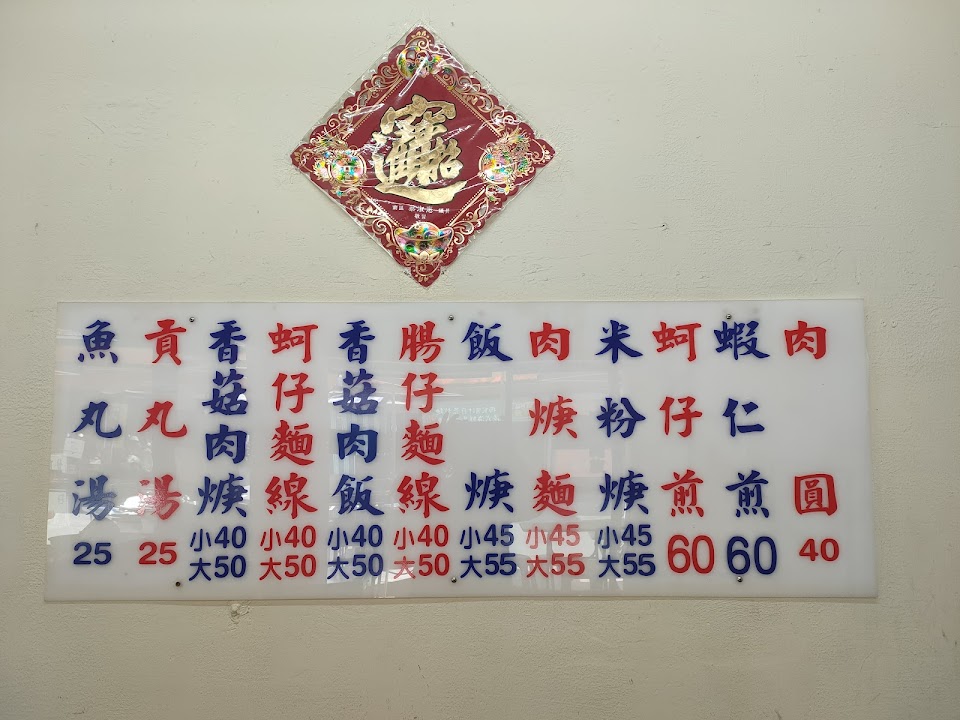 招財進寶
肉圓 40
蝦仁煎 60
蚵仔煎 60
米粉焿 小45 大55
肉焿麵 小45 大55
飯焿 小45 大55
腸仔麵線 小40 大50
香菇肉飯 小40 大50
蚵仔麵線 小40 大50
香菇肉焿 小40 大50
貢丸湯 25
魚丸湯 25